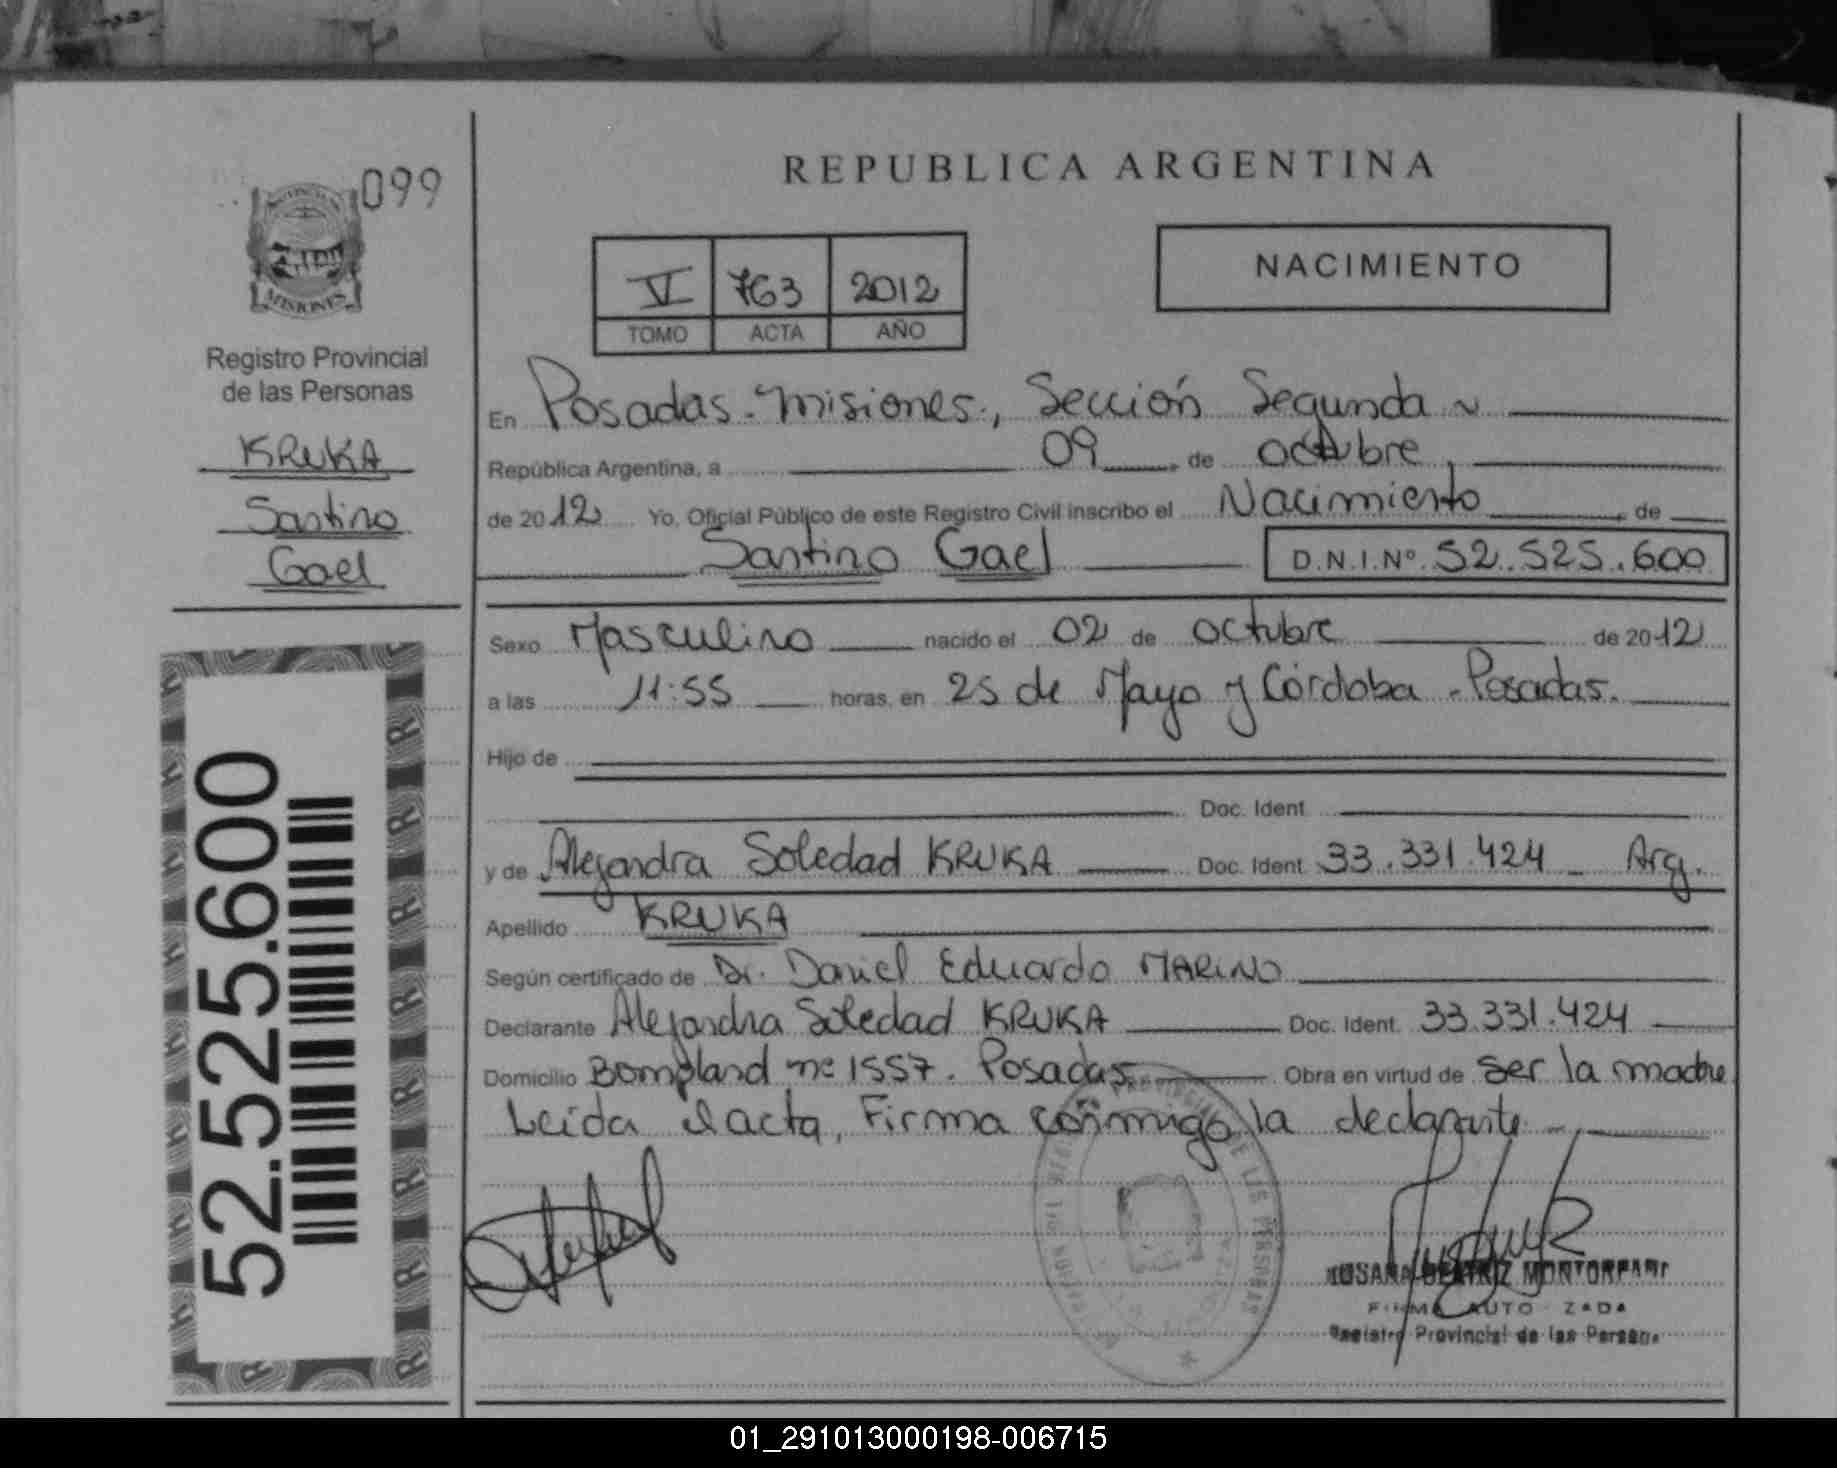 099
MISIONES
Registro Provincial
de las Personas
KRUKA
Santino
Gael
52.525.600
REPUBLICA ARGENTINA
V 763 2012
TOMO ACTA AÑO
NACIMIENTO
En Posadas - Misiones, Sección Segunda
República Argentina, a 09 de octubre,
de 2012 Yo, Oficial Público de este Registro Civil inscribo el Nacimiento de
Santino Gael D.N.I.Nº 52.525.600
Sexo Masculino nacido el 02 de octubre de 2012
a las 11:55 horas, en 25 de Mayo y Córdoba - Posadas.
Hijo de
Doc. Ident.
y de Alejandra Soledad KRUKA Doc. Ident. 33.331.424 Arg.
Apellido KRUKA
Según certificado de Dr. Daniel Eduardo MARINO
Declarante Alejandra Soledad KRUKA Doc. Ident. 33.331.424
Domicilio Bompland nº 1557. Posadas Obra en virtud de ser la madre
Leída el acta, Firma conmigo la declarante
BEATRIZ
Registro Provincial de las Personas
01_291013000198-006715